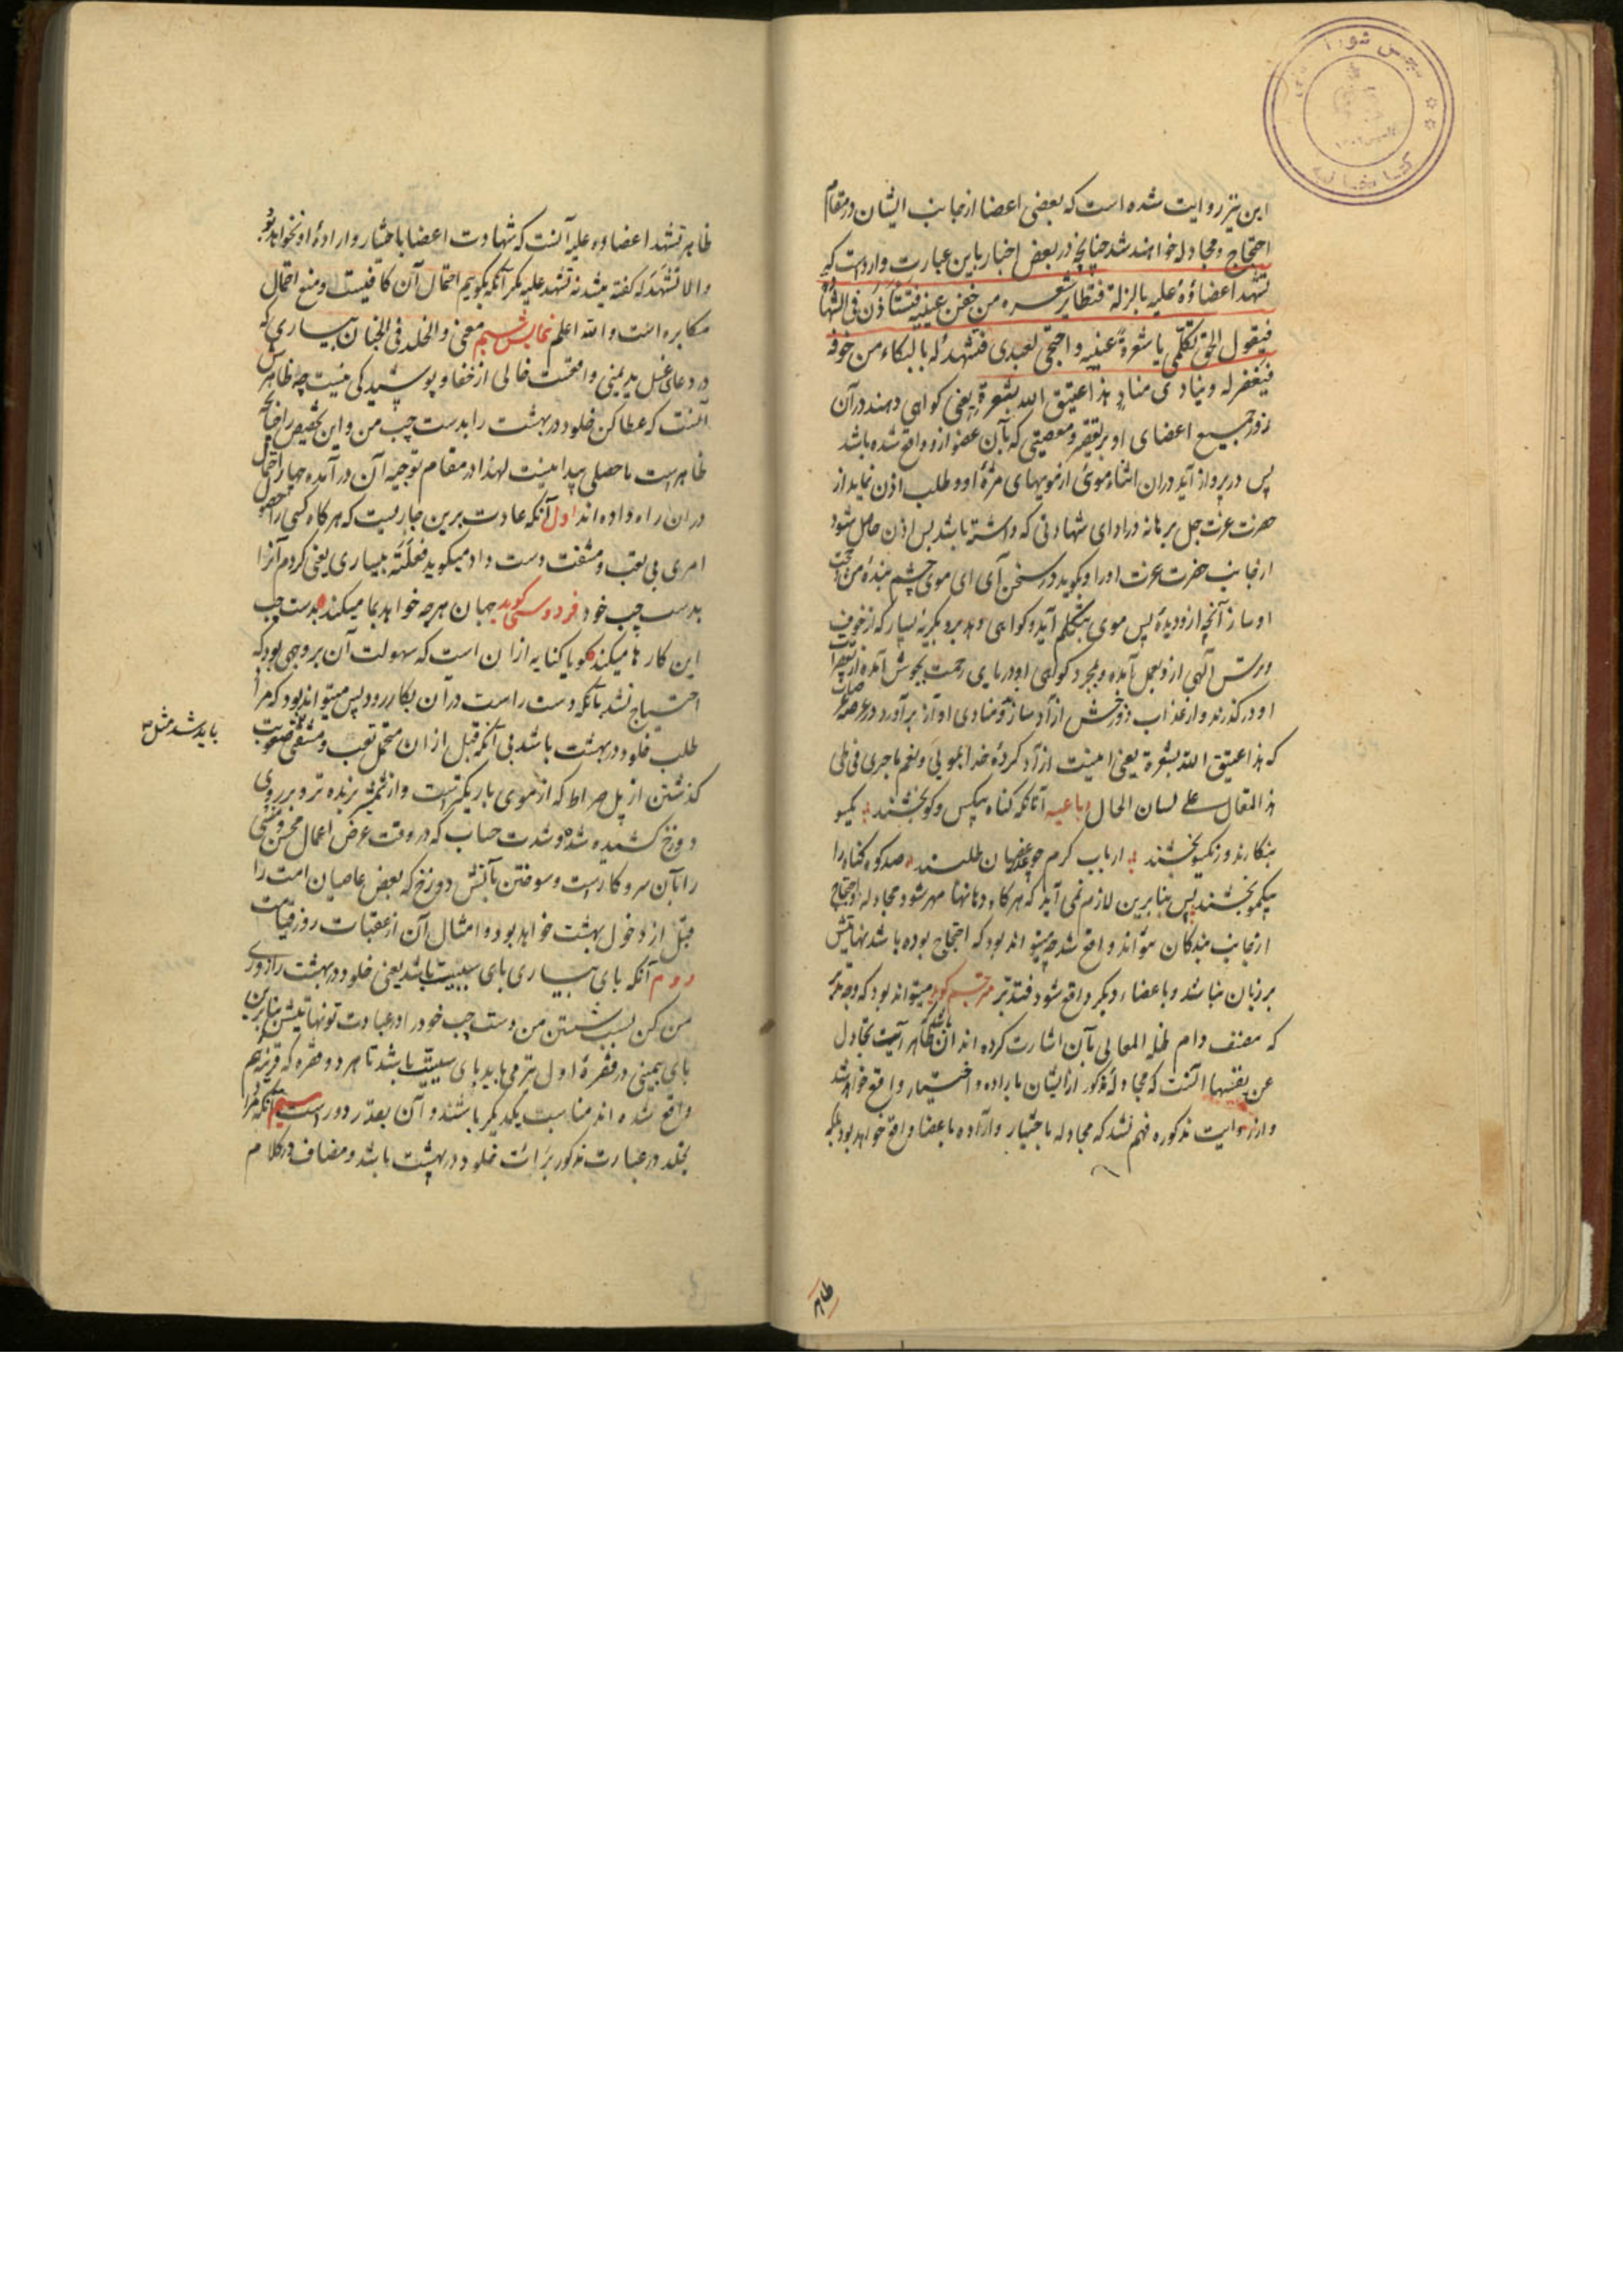 این نیز روایت شده است که بعضی اعضا از جانب ایشان در مقام
احتجاج و مجادله خواهند شد چنانچه در بعض اخبار باین عبارت وارد است که
تشهد اعضاؤه علیه بالزلة فتطایر شعره من جفن عینیه فتستأذن فی الشهادة
فیقول الحق تکلمی یا شعرة عینیه و احتجی لعبدی فتشهد له بالبکاء من خوفه
فیغفر له و ینادی مناد هذا عتیق الله بشعرة یعنی کواهی دهند در آن
روز جمیع اعضای او بر تقصیر و معصیتی که بآن عضو ازو واقع شده باشد
پس در پرواز آید در ان اثناء موئ از مویهای مژهٔ او و طلب اذن نماید از
حضرت عزت جل برهانه در ادای شهادتی که داشته باشد پس اذن حاصل شود
از جانب حضرت عزت اورا و کوید در سخن آی ای موی چشم بندهٔ من و حجت
او ساز آنچه ازو دیدهٔ پس موی بتکلم آید و کواهی دهد برو بکریهٔ بسیار که از خوف
و ترس آلهی ازو بعمل آمده و بمجرد کواهی او دریای رحمت بجوش آمده از تقصیرات
او در کذرند و از عذاب دوزخش آزاد سازند و منادی آواز برآورد در عرصهٔ
که هذا عتیق الله بشعرة یعنی اینست آزاد کردهٔ خدا بموئی و لنعم ما جری فی طی
هذا المقال علی لسان الحال رباعیه آنانکه کناه بیکس و کو بخشند یکمو
بنکارند و زیکمو بخشند ارباب کرم چو عذرخواهان طلبند صد کوه کناه را
بیکمو بخشند پس بنابرین لازم نمی آید که هر کاه دهانها مهر شود مجادله و احتجاج
از جانب بندکان نتواند واقع شد چه میتواند بود که احتجاج بوده باشد نهایتش
بر زبان نباشد و باعضاء دیکر واقع شود فتدبر مترجم کوید میتواند بود که وجه تدبر
که مصنف دام ظله العالی بآن اشارت کرده اند آن باشد که ظاهر آیت تجادل
عن نفسها آنست که مجادلهٔ مذکور از ایشان باراده و اختیار واقع خواهد شد
و از روایت مذکوره فهم نشد که مجادله باختیار و اراده باعضا واقع خواهد بود بلکه
ظاهر
ظاهر تشهد اعضاؤه علیه آنست که شهادت اعضا باختیار و ارادهٔ او نخواهد بود
و الا تشهد له کفته میشد نه تشهد علیه مکر آنکه بکوییم احتمال آن کافیست و منع احتمال
مکابره است و الله اعلم نمایش شیم معنی و الخلد فی الجنان بیساری که
در دعای غسل ید یمنی واقعست خالی از خفا و پوشیدکی نیست چه ظاهرش
آنست که عطا کن خلود در بهشت را بدست چپ من و این تخصیص را چنانچه
ظاهر است ما حصلی پیدا نیست لهذا در مقام توجیه آن در آمده چهار احتمال
در ان راه داده اند اول آنکه عادت برین جاریست که هر کاه کسی را حصول
امری بی تعب و مشقت دست داد میکوید فعلته بیساری یعنی کردم آنرا
بدست چپ خود فردوسی کوید جهان هر چه خواهد بما میکند بدست چپ
این کارها میکند کویا کنایه از ان است که سهولت آن بر وجهی بود که
احتیاج نشد بآنکه دست راست در ان بکار رود پس میتواند بود که مراد
طلب خلود در بهشت باشد بی آنکه قبل از ان متحمل تعب و مشقتی و صعوبت
باید شد مثل
کذشتن از پل صراط که از موی باریکتر است و از شمشیر برنده تر و بر روی
دوزخ کشیده شده و شدت حساب که در وقت عرض اعمال محسن و مسی
را بآن سر و کار است و سوختن بآتش دوزخ که بعض عاصیان امت را
قبل از دخول بهشت خواهد بود و امثال آن از عقبات روز قیامت
دوم آنکه بای بیساری بای سببیت باشد یعنی خلود در بهشت را روزی
من کن بسبب شستن من دست چپ خود را در عبادت تو نهایتش بنابرین
بای بیمینی در فقرهٔ اول نیز می باید بای سببیت باشد تا هر دو فقره که قرینهٔ هم
واقع شده اند مناسب یکدیکر باشند و آن بعدّ دور است سیم آنکه مراد
بخلد در عبارت مذکور برائت خلود در بهشت باشد و مضاف در کلام